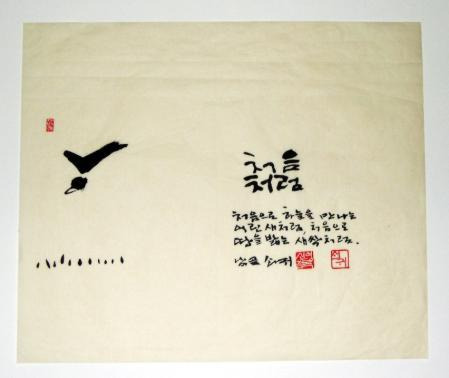 처음
처럼
처음으로 하늘을 만나는
어린 새처럼, 처음으로
땅을 밟는 새싹처럼.